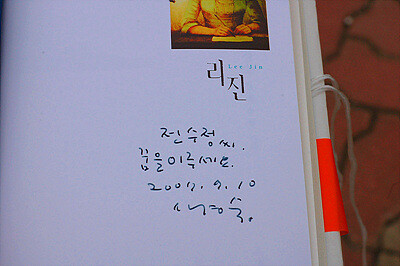 리진
Lee Jin
전수정 씨.
꿈을 이루세요.
2007. 9. 10
신경숙.